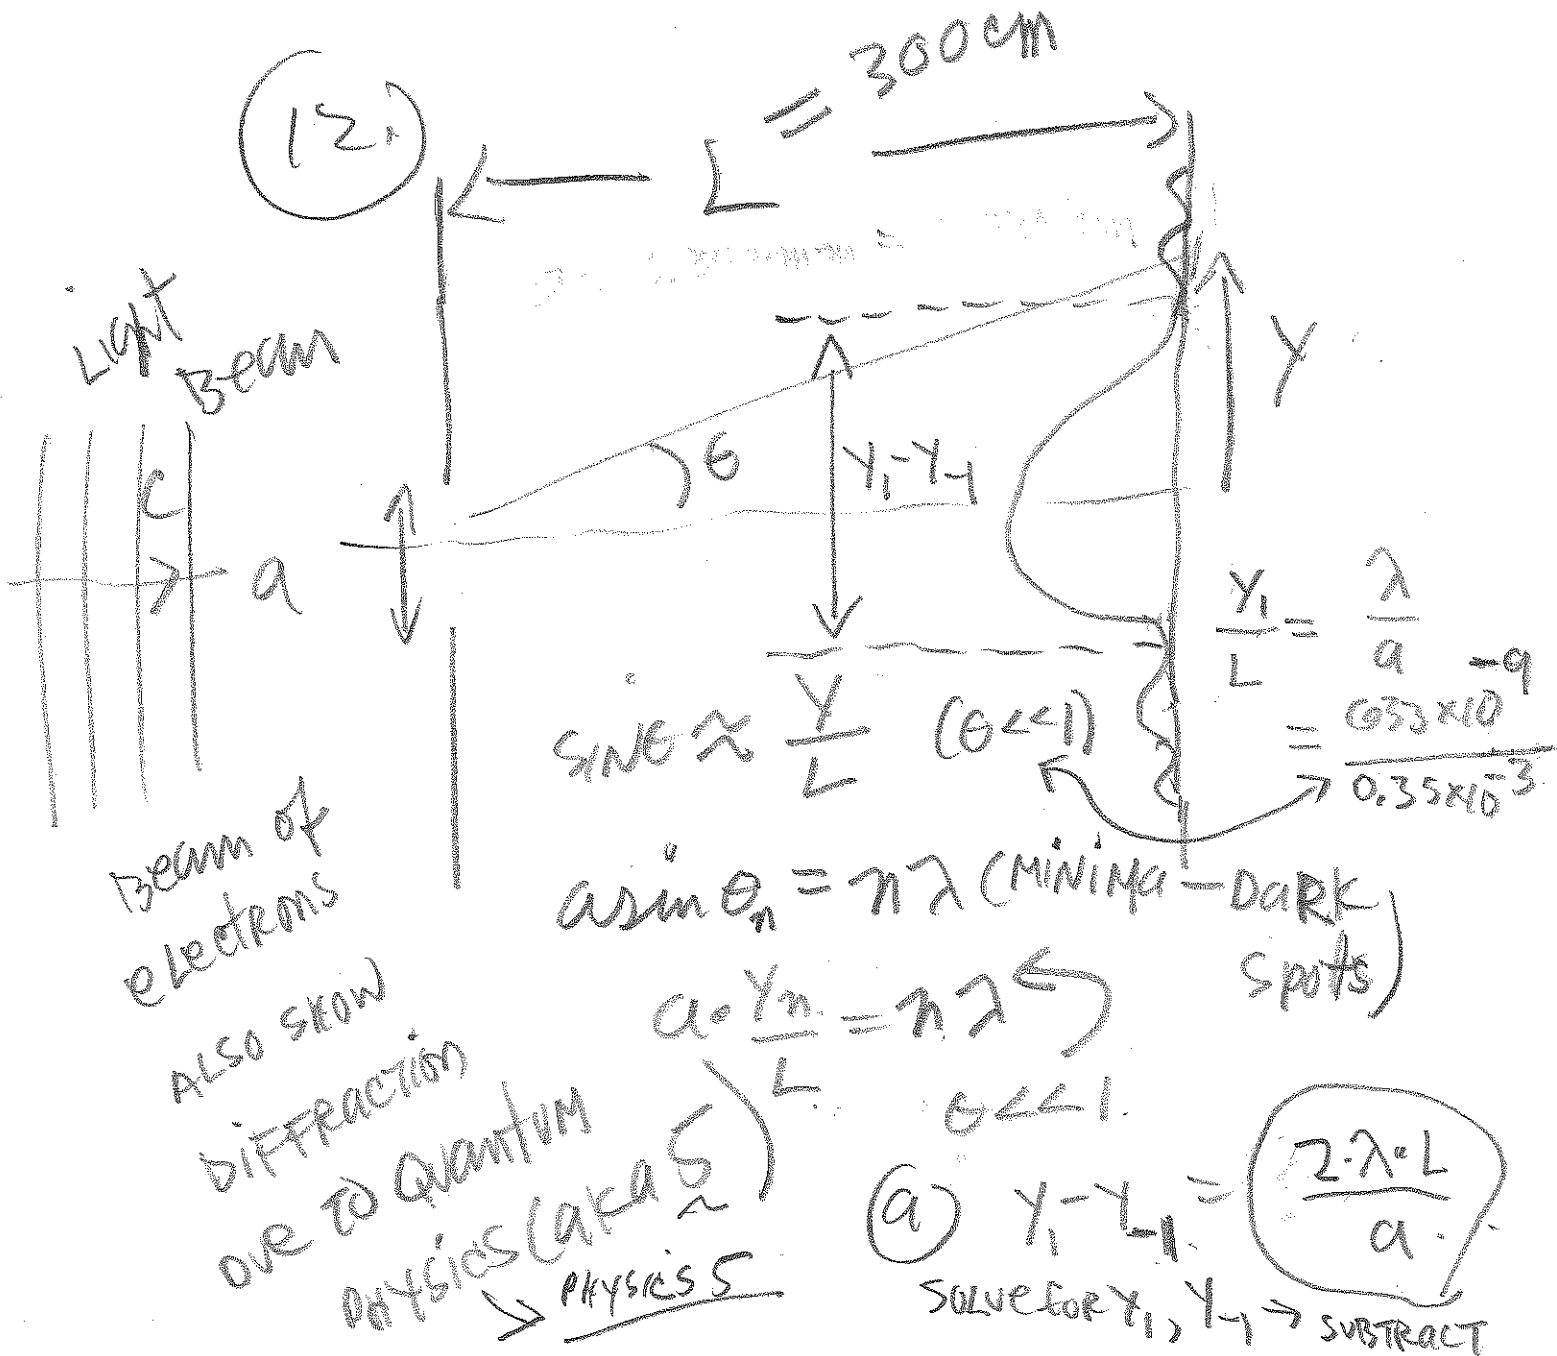 12.
L = 300cm
Light Beam
C
a
θ
Y₁-Y₋₁
Y
Y₁/L = λ/a
= 633×10⁻⁹/0.35×10⁻³
SINθ ≈ Y/L (θ<<1)
a sin θₙ = nλ (MINIMa - DaRK Spots)
a · Yₙ/L = nλ
θ<<1.
Beam of
eLectRons
ALSO SHOW
DIFFRaCTION
DUE TO QUaNTUM
PHYSICS (aka 5)
→ PHYSICS 5
(a) Y₁-Y₋₁ = 2·λ·L/a
SOLVE FOR Y₁, Y₋₁ → SUBTRACT